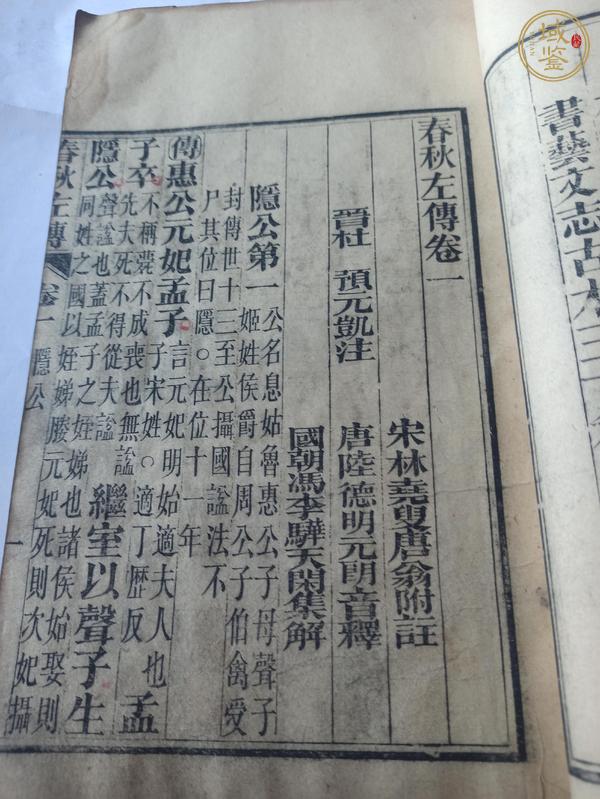 域鉴
書藝文志古
春秋左傳卷一
宋林堯叟唐翁附註
晉杜 預元凱注
唐陸德明元朗音釋
國朝馮李驊天閑集解
隱公第一
公名息姑魯惠公子母聲子
姬姓侯爵自周公子伯禽受
封傳世十三至公攝國諡法不
尸其位曰隱○在位十一年
傳惠公元妃孟子
言元妃明始適夫人也
子宋姓○適丁歷反
孟
子卒
不稱薨不成喪也無諡
先夫死不得從夫諡
繼室以聲子生
隱公
聲諡也蓋孟子之姪娣也諸侯始娶則
同姓之國以姪娣媵元妃死則次妃攝
春秋左傳 卷一 隱公 一